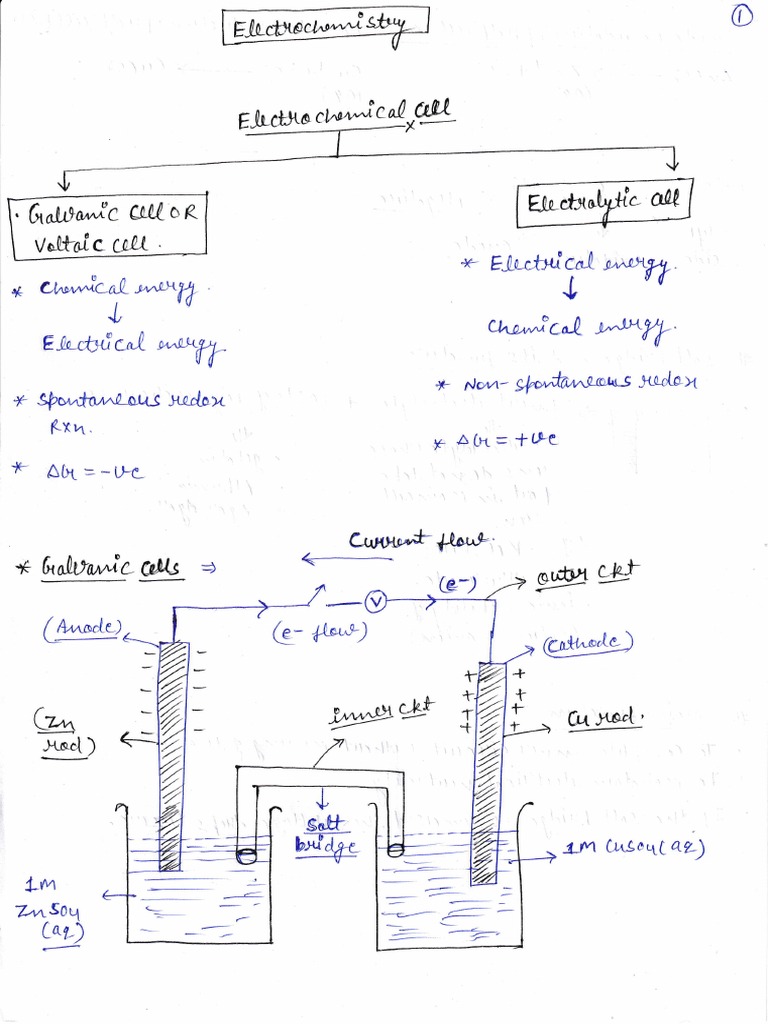 1
Electrochemistry
Electrochemical cell
Galvanic cell OR
Voltaic cell.
* Chemical energy.
↓
Electrical energy
* Spontaneous redox
Rxn.
* ΔG = -ve
Electralytic cell
* Electrical energy.
↓
Chemical energy.
* Non-spontaneous redox
* ΔG = +ve
* Galvanic cells ⇒
Current flow.
(e-)
outer ckt
(Anode)
(e- flow)
V
(Cathode)
(Zn
rod)
inner ckt
Cu rod.
Salt
bridge
1M
ZnSO4
(aq)
1M CuSO4(aq)